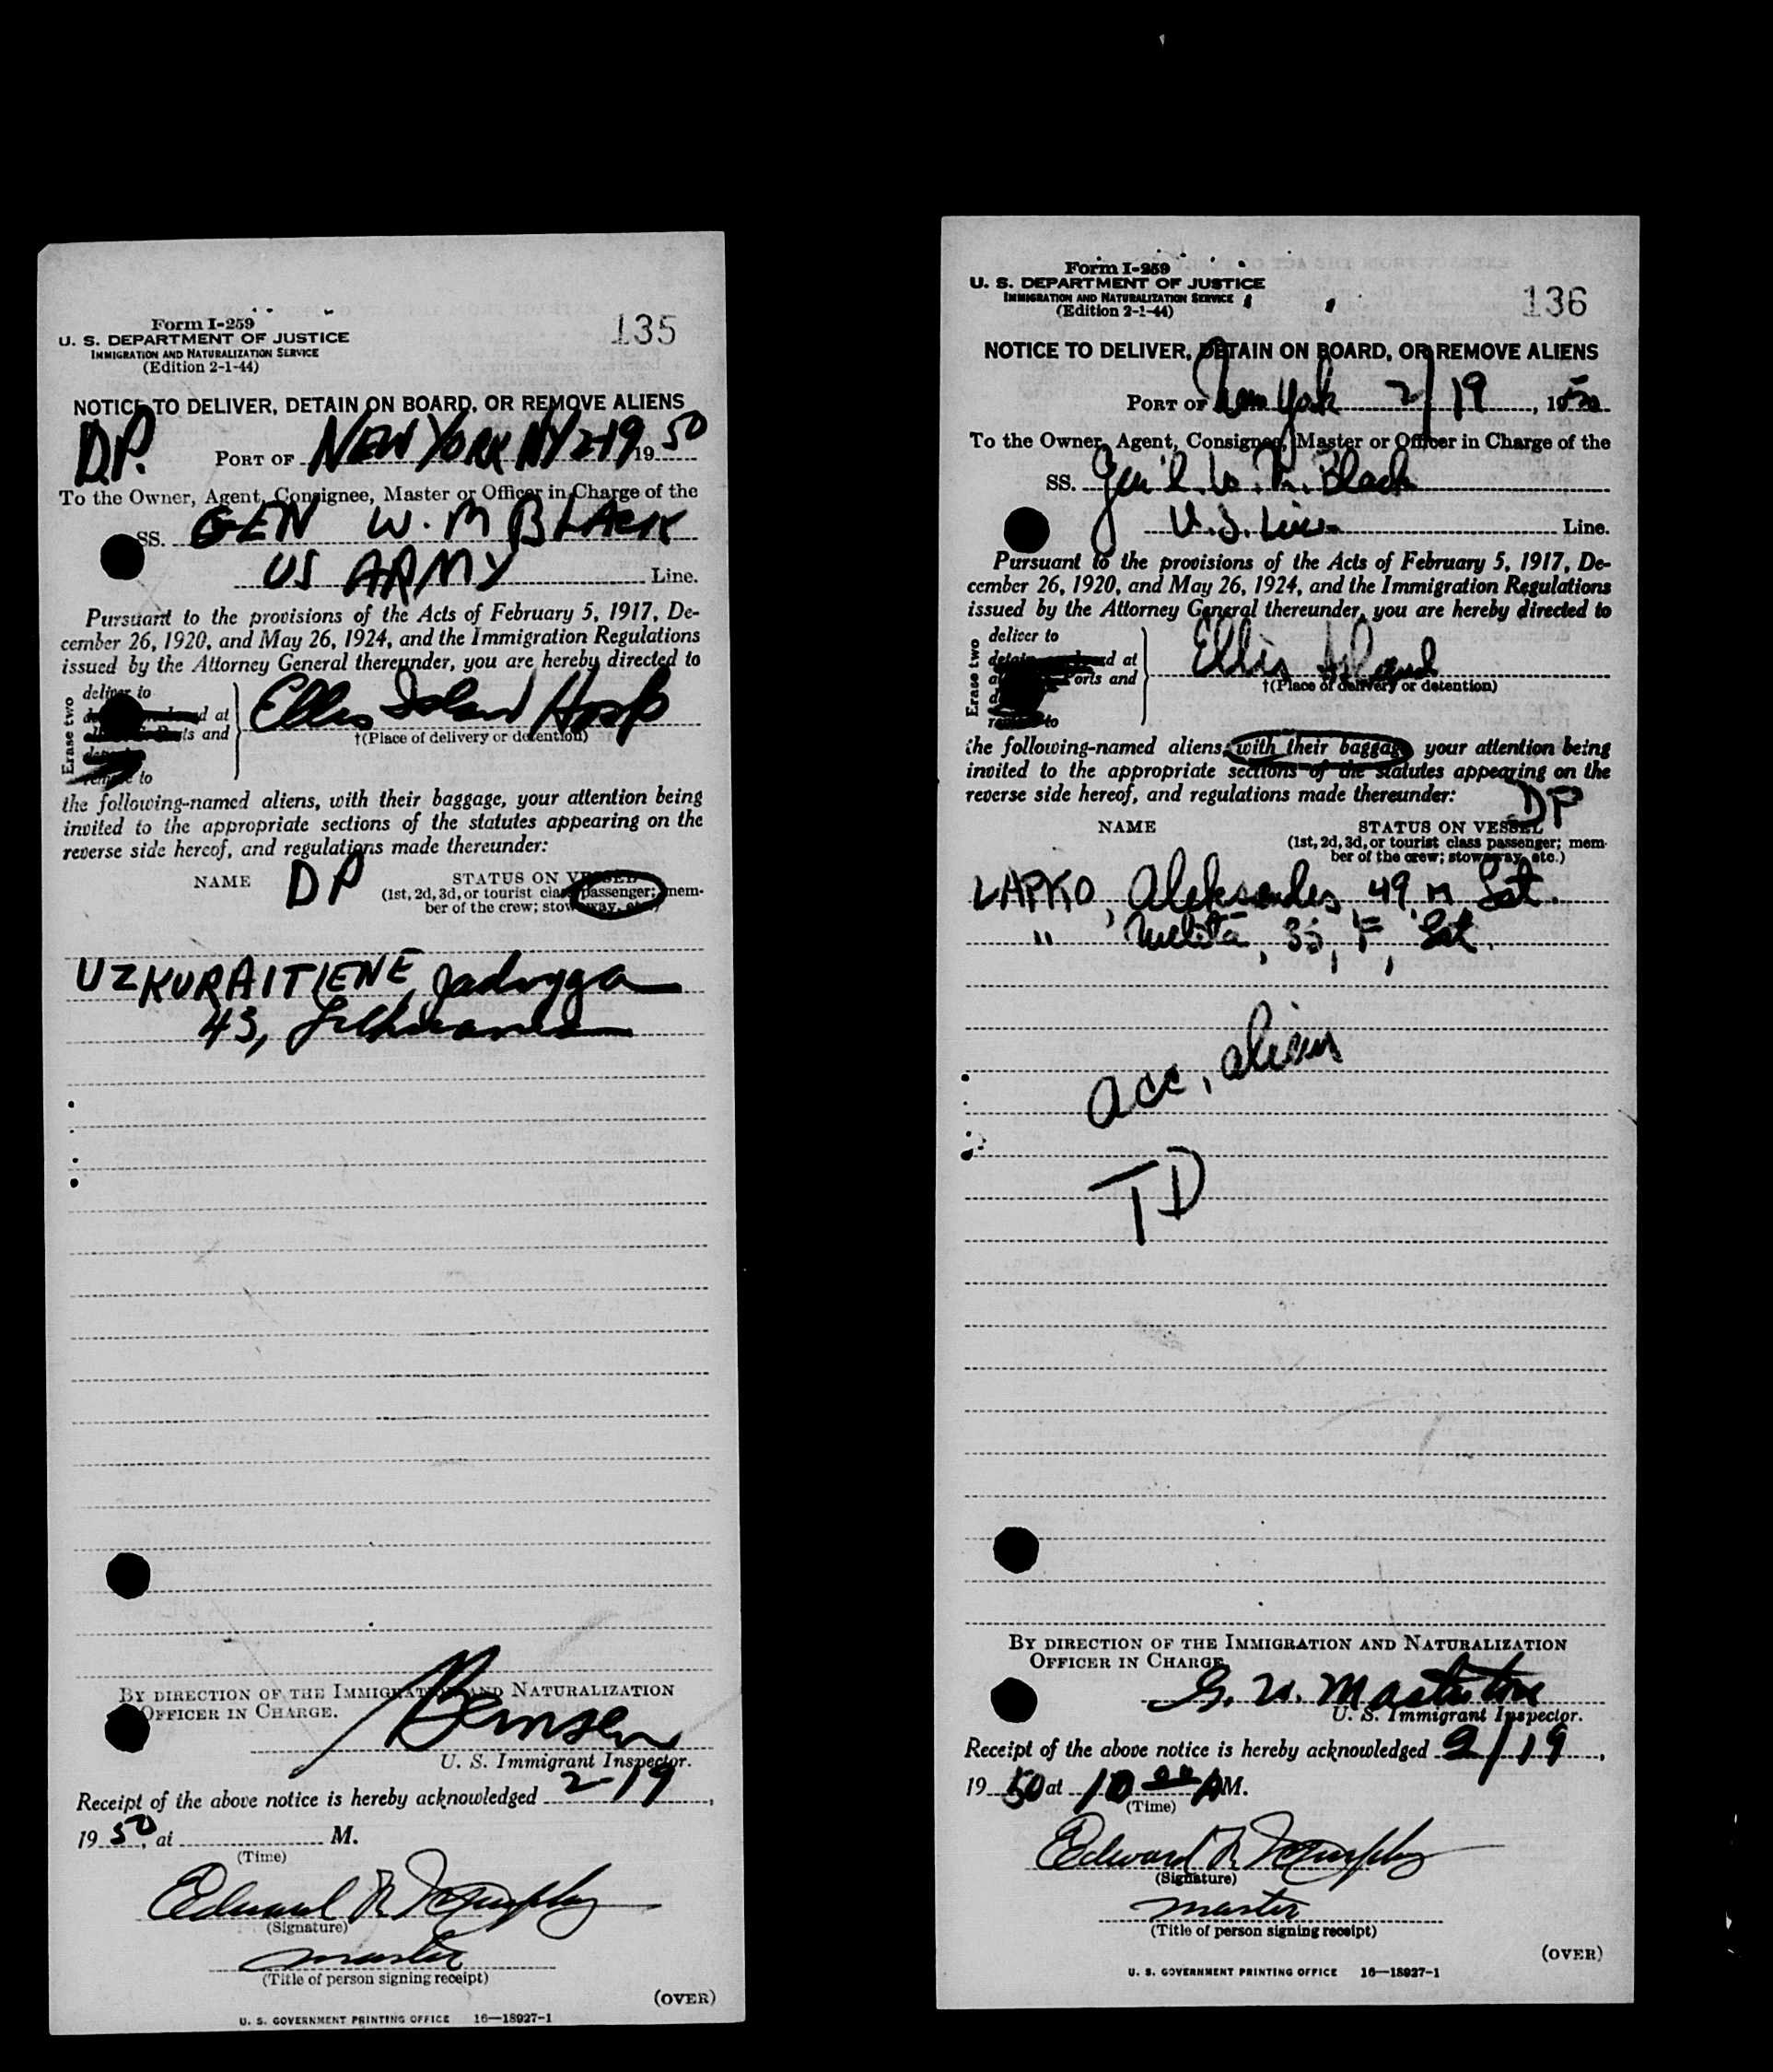 Form I-259
U. S. DEPARTMENT OF JUSTICE
IMMIGRATION AND NATURALIZATION SERVICE
(Edition 2-1-44)
135
NOTICE TO DELIVER, DETAIN ON BOARD, OR REMOVE ALIENS
D.P.
PORT OF NEW YORK NY 2-19 1950
To the Owner, Agent, Consignee, Master or Officer in Charge of the
SS. GEN W. M BLACK
US ARMY Line.
Pursuant to the provisions of the Acts of February 5, 1917, De-
cember 26, 1920, and May 26, 1924, and the Immigration Regulations
issued by the Attorney General thereunder, you are hereby directed to
Erase two
deliver to
d at
ts and
to
Ellis Island Hosp
†(Place of delivery or detention)
the following-named aliens, with their baggage, your attention being
invited to the appropriate sections of the statutes appearing on the
reverse side hereof, and regulations made thereunder:
NAME DP STATUS ON VESSEL
(1st, 2d, 3d, or tourist class passenger; mem-
ber of the crew; stowaway, etc.)
UZKURAITIENE, Jadvyga
43, Lithuania
BY DIRECTION OF THE IMMIGRATION AND NATURALIZATION
OFFICER IN CHARGE.
U. S. Immigrant Inspector.
Receipt of the above notice is hereby acknowledged 2-19,
1950, at M.
(Time)
Edward R Murphy
(Signature)
master
(Title of person signing receipt)
(OVER)
U. S. GOVERNMENT PRINTING OFFICE 16—18927-1
Form I-259
U. S. DEPARTMENT OF JUSTICE
IMMIGRATION AND NATURALIZATION SERVICE
(Edition 2-1-44)
136
NOTICE TO DELIVER, DETAIN ON BOARD, OR REMOVE ALIENS
PORT OF New York 2/19, 1950
To the Owner, Agent, Consignee, Master or Officer in Charge of the
SS. Gen'l. W. M. Black
U.S. Lines Line.
Pursuant to the provisions of the Acts of February 5, 1917, De-
cember 26, 1920, and May 26, 1924, and the Immigration Regulations
issued by the Attorney General thereunder, you are hereby directed to
Erase two
deliver to
d at
orts and
to
Ellis Island
†(Place of delivery or detention)
the following-named aliens, with their baggage, your attention being
invited to the appropriate sections of the statutes appearing on the
reverse side hereof, and regulations made thereunder:
DP
NAME STATUS ON VESSEL
(1st, 2d, 3d, or tourist class passenger; mem-
ber of the crew; stowaway, etc.)
LAPKO, Aleksandrs 49 M Lat.
" , Melita, 35, F, Lat.
acc. alien
TD
BY DIRECTION OF THE IMMIGRATION AND NATURALIZATION
OFFICER IN CHARGE
U. S. Immigrant Inspector.
Receipt of the above notice is hereby acknowledged 2/19,
1950 at 10 00 AM.
(Time)
Edward R Murphy
(Signature)
master
(Title of person signing receipt)
(OVER)
U. S. GOVERNMENT PRINTING OFFICE 16—18927-1